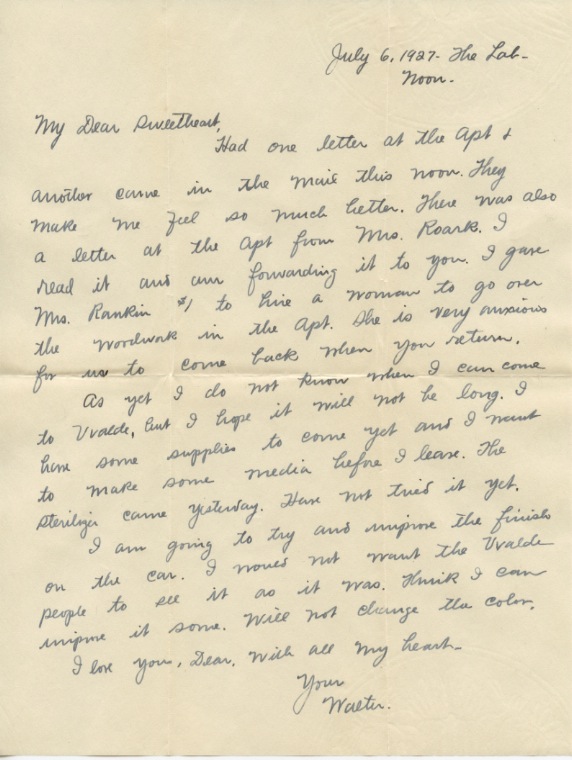 July 6, 1927- The Lab-
Noon.
My Dear Sweetheart,
Had one letter at the Apt &
another came in the mail this noon. They
make me feel so much better. There was also
a letter at the Apt from Mrs. Roark. I
read it and am forwarding it to you. I gave
Mrs. Rankin $1 to hire a woman to go over
the woodwork in the Apt. She is very anxious
for us to come back when you return.
As yet I do not know when I can come
to Uvalde, but I hope it will not be long. I
have some supplies to come yet and I want
to make some media before I leave. The
sterilizer came yesterday. Have not tried it yet.
I am going to try and improve the finish
on the car. I would not want the Uvalde
people to see it as it was. Think I can
improve it some. Will not change the color.
I love you, Dear, with all my heart-
Your
Walter.